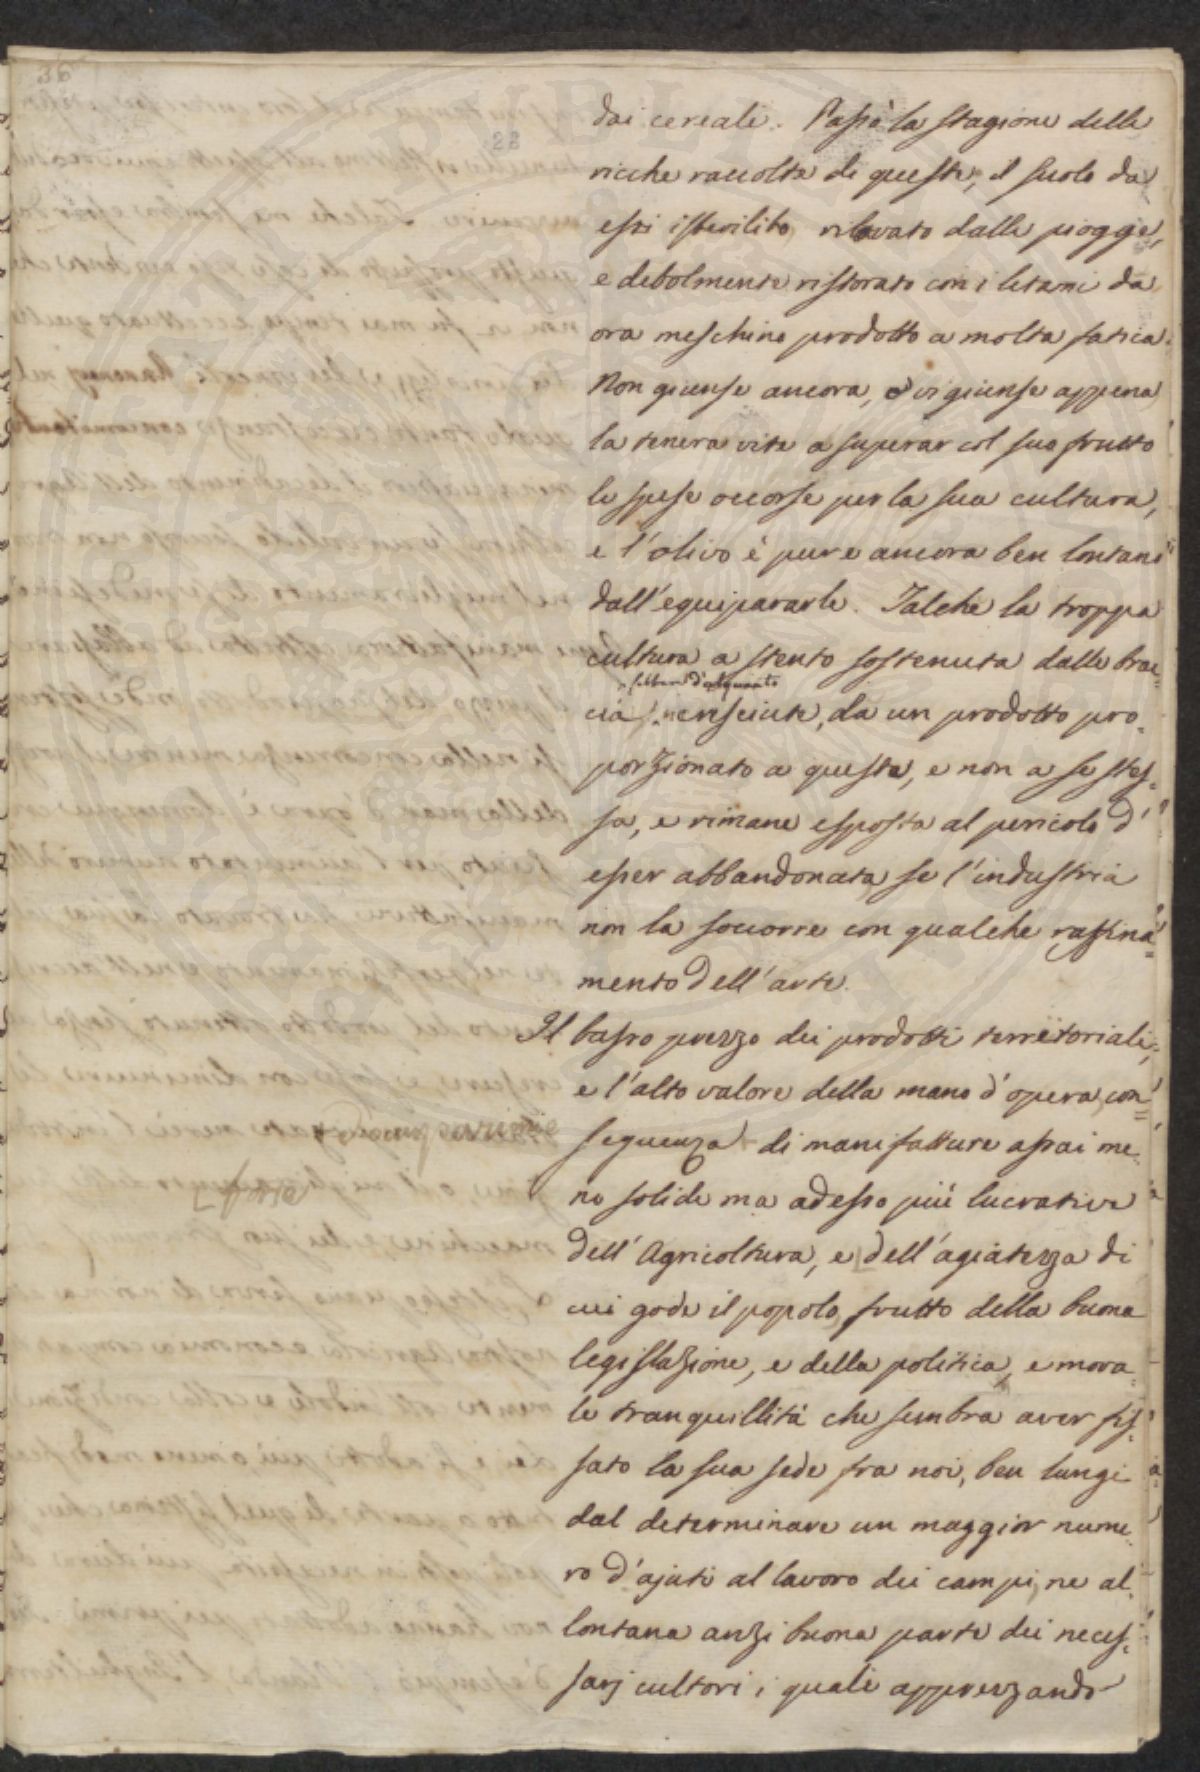 36
22
dai cereali. Passò la stagione delle
ricche raccolte di questi, il suolo da
essi isterilito, rilavato dalle piogge,
e debolmente ristorato con i letami da
ora meschino prodotto a molta fatica.
Non giunse ancora, o vi giunse appena
la tenera vite a superar col suo frutto
le spese occorse per la sua cultura,
e l'olivo è pure ancora ben lontano
dall'equipararle. Talche la troppa
cultura a stento sostenuta dalle brac-
sebben d'alquanto
cia cresciute, da un prodotto pro-
porzionato a questa, e non a se stes-
sa, e rimane esposta al pericolo d'
esser abbandonata se l'industria
non la soccorre con qualche raffina-
mento dell'arte.
Il basso prezzo dei prodotti territoriali,
e l'alto valore della mano d'opera, con-
seguenza di manifatture assai me-
forse
no solide ma adesso più lucrative
dell'Agricoltura, e dell'agiatezza di
cui gode il popolo, frutto della buona
legislazione, e della politica, e mora-
le tranquillità che sembra aver fis-
sato la sua sede fra noi, ben lungi
dal determinare un maggior nume-
ro d'ajuti al lavoro dei campi, ne al-
lontana anzi buona parte dei neces-
sarj cultori i quali apprezzando